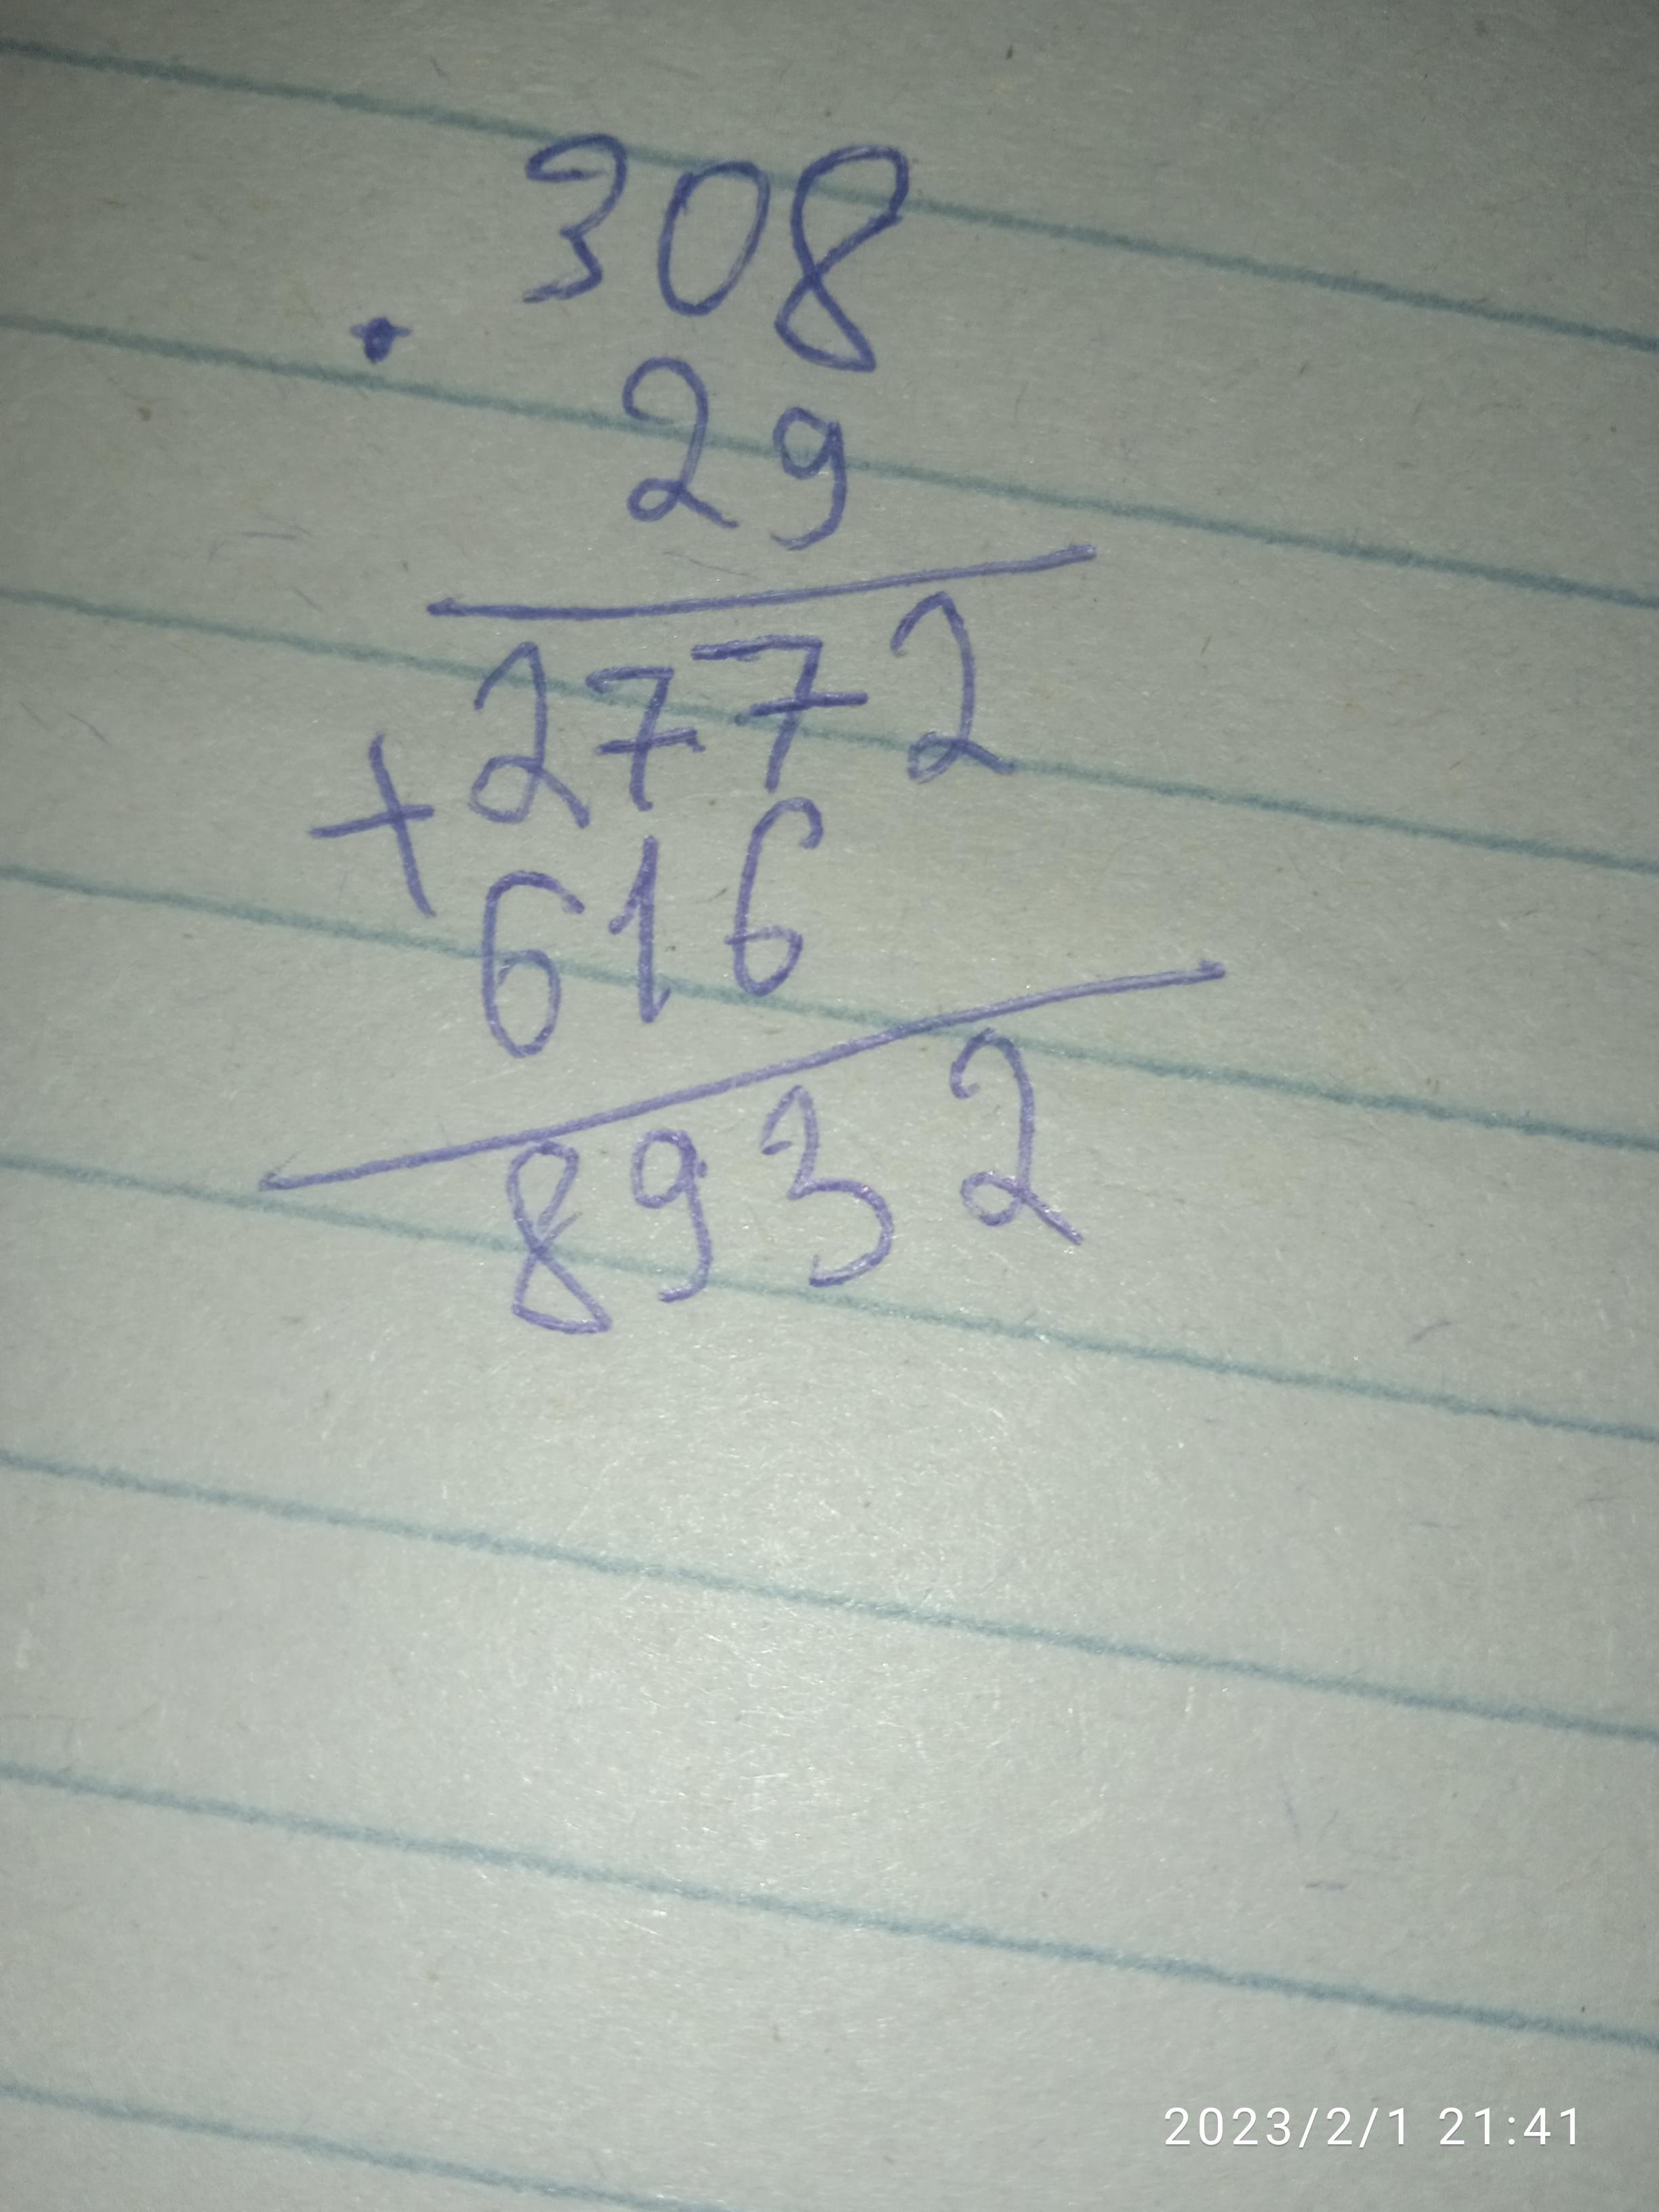 308
.
29
2772
+
616
8932
2023/2/1 21:41